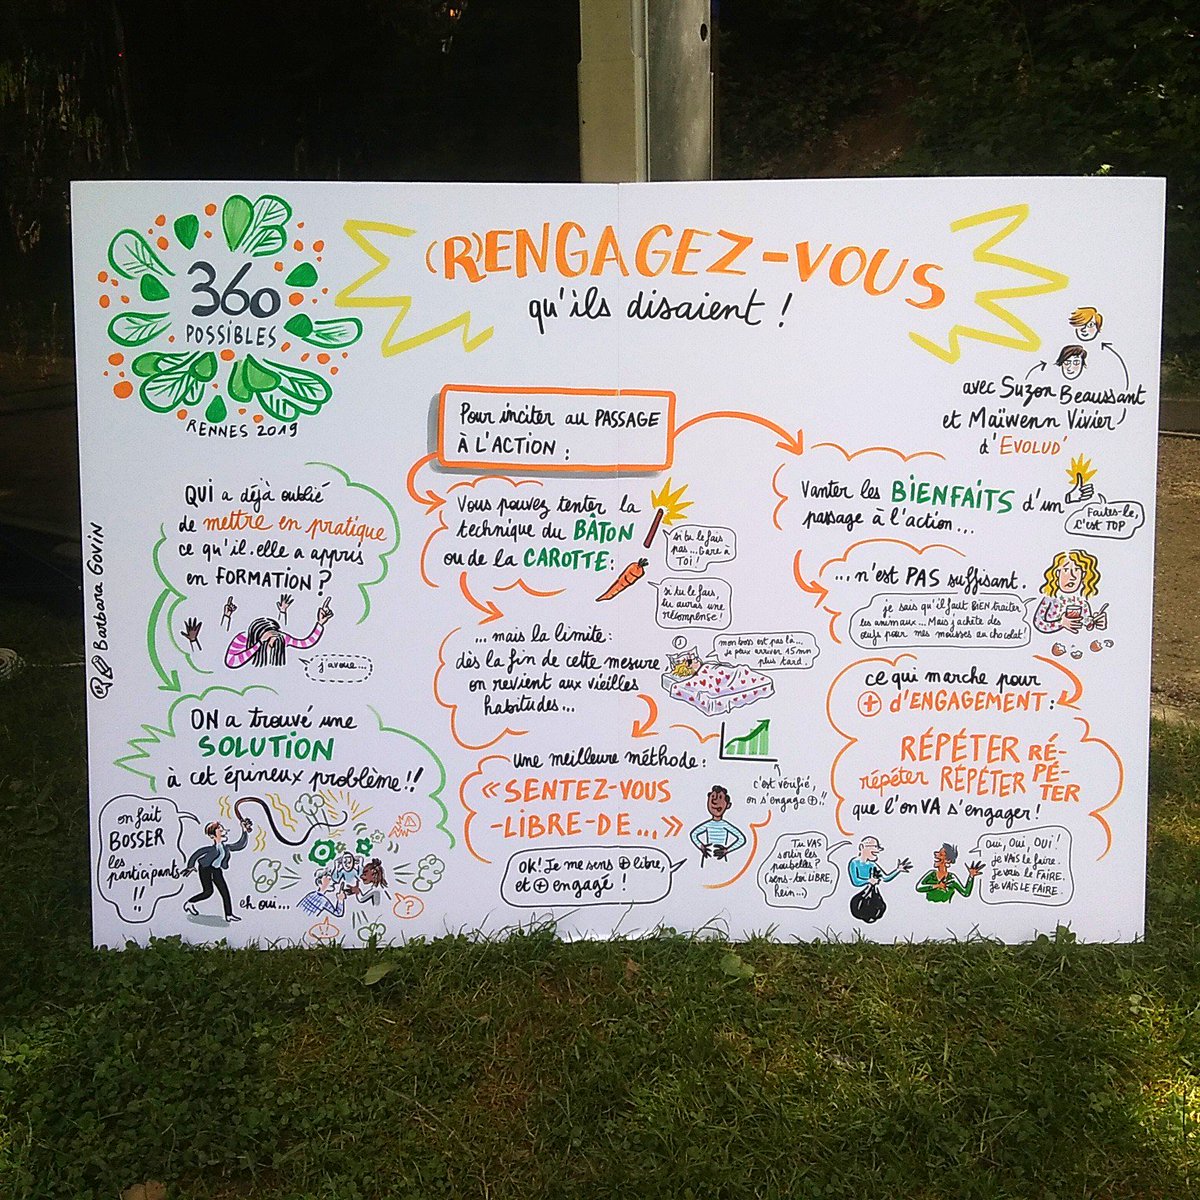 360
POSSIBLES
RENNES 2019
(R)ENGAGEZ-VOUS
qu'ils disaient !
avec Suzon Beaussant
et Maïwenn Vivier
d'EVOLUD'
@ Barbara Govin
QUI a déjà oublié
de mettre en pratique
ce qu'il.elle a appris
en FORMATION ?
j'avoue...
ON a trouvé une
SOLUTION
à cet épineux problème !!
on fait
BOSSER
les
participants
!!
eh oui...
?
!!
Pour inciter au PASSAGE
À L'ACTION :
Vous pouvez tenter la
technique du BÂTON
ou de la CAROTTE :
si tu le fais
pas... Gare à
Toi !
si tu le fais,
tu auras une
récompense !
... mais la limite :
dès la fin de cette mesure,
on revient aux vieilles
habitudes...
mon boss est pas là...
je peux arriver 15mn
plus tard.
une meilleure méthode :
« SENTEZ-VOUS
-LIBRE-DE... »
c'est vérifié,
on s'engage + !!
OK! Je me sens + libre,
et + engagé !
Vanter les BIENFAITS d'un
passage à l'action...
Faites-le,
C'est TOP
... n'est PAS suffisant.
je sais qu'il faut BIEN traiter
les animaux... Mais j'achète des
œufs pour mes mousses au chocolat!
ce qui marche pour
+ d'ENGAGEMENT :
RÉPÉTER RÉ-
répéter RÉPÉTER PÉ-
TER
que l'on VA s'engager !
Tu VAS
sortir les
poubelles ?
(sens-toi LIBRE,
hein...)
Oui, Oui, OUI !
je VAIS le faire.
Je vais le FAIRE.
Je VAIS LE FAIRE.